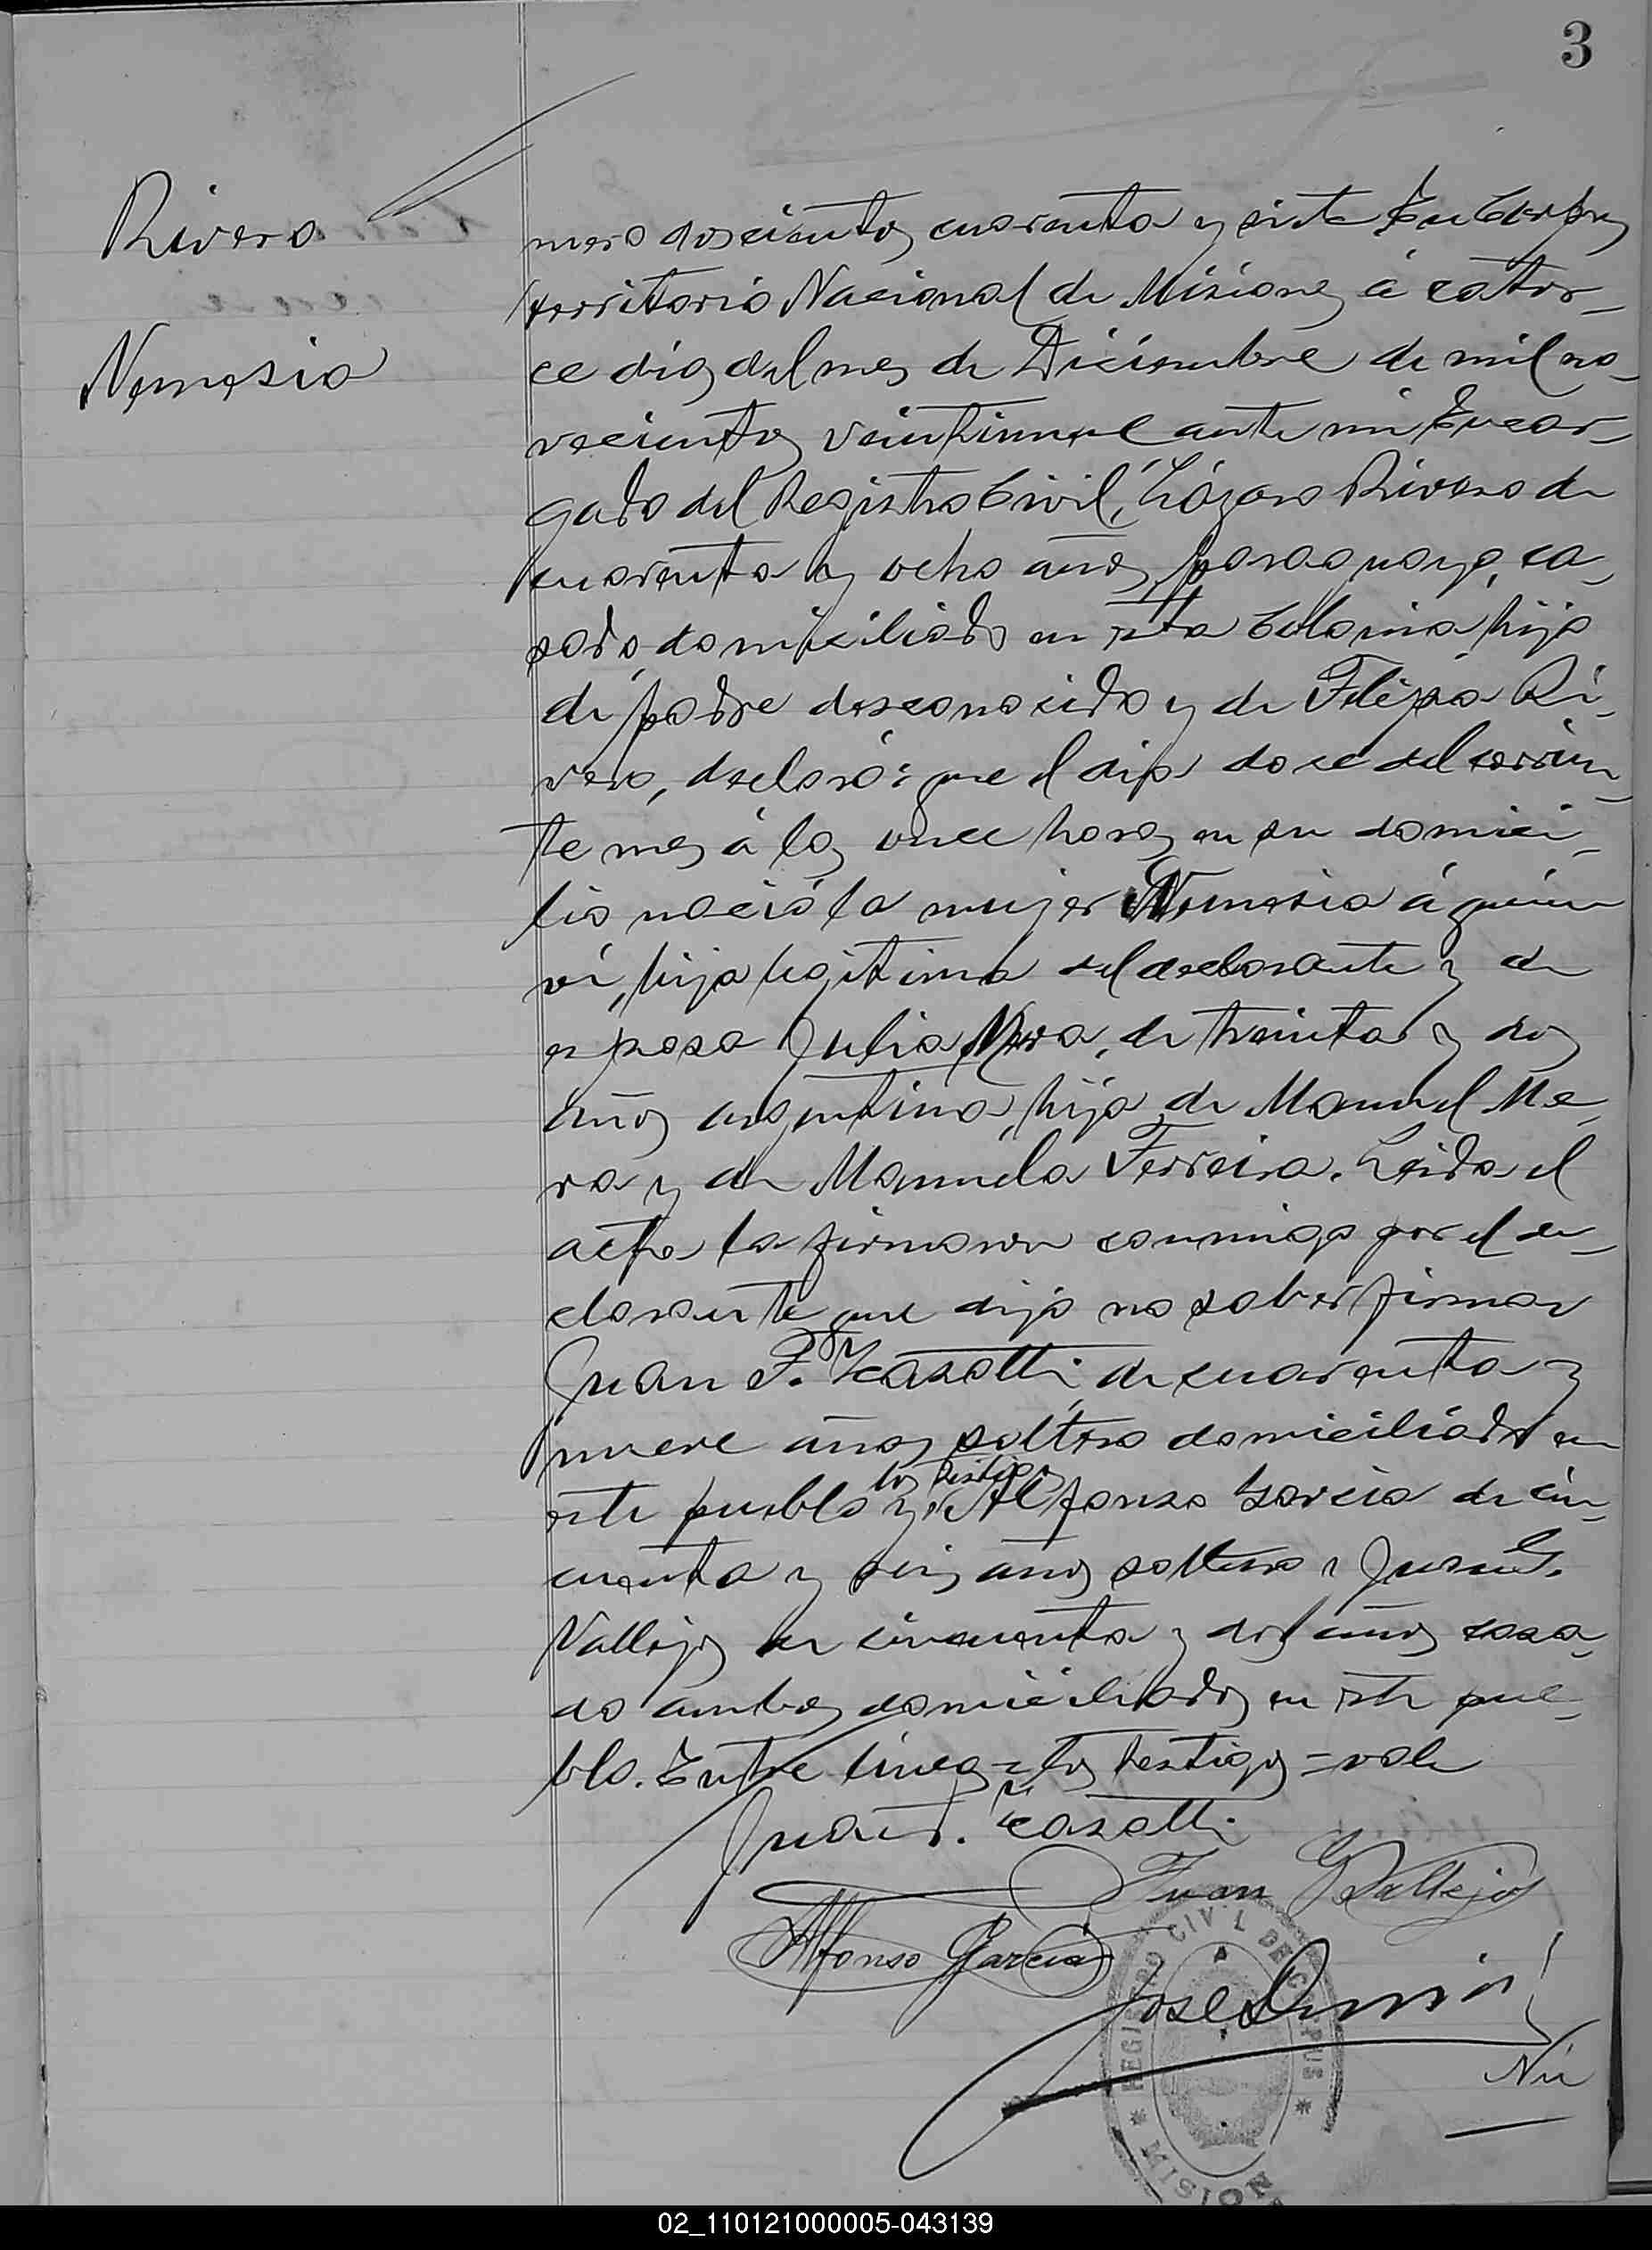 3
Rivero
Nemesia
mero doscientos cuarenta y siete En Corpus
territorio Nacional de Misiones á cator-
ce dias del mes de Diciembre de mil no-
vecientos veintinueve ante mi Encar-
gado del Registro Civil, Lázaro Rivero de
cuarenta y ocho años paraguayo, ca-
sado, domiciliado en esta Colonia, hijo
de padre desconocido y de Ri-
vero, declaró: que el dia doce del corrien-
te mes á las once horas en su domici-
lio nació la mujer Nemesia á quien
ví, hija legitima del declarante y de
esposa Julia Mera, de treinta y dos
años argentina, hija de Manuel Me-
ra y de Manuela Ferreira. Leida el
acta la firmaron conmigo por el de-
clarante que dijo no saber firmar
Juan F. Casatti, de cuarenta y
nueve años soltero domiciliado en
los testigos
este pueblo y Alfonso Garcia de cin-
cuenta y seis años soltero y Juan G.
Vallejos de cincuenta y dos años casa-
do ambos domiciliados en este pue-
blo. Entre lineas = los testigos = vale
Juan F. Casatti
Juan G Vallejos
Alfonso Garcia
José
Nú
REGISTRO CIVIL DE CORPUS
MISIONES
02_110121000005-043139